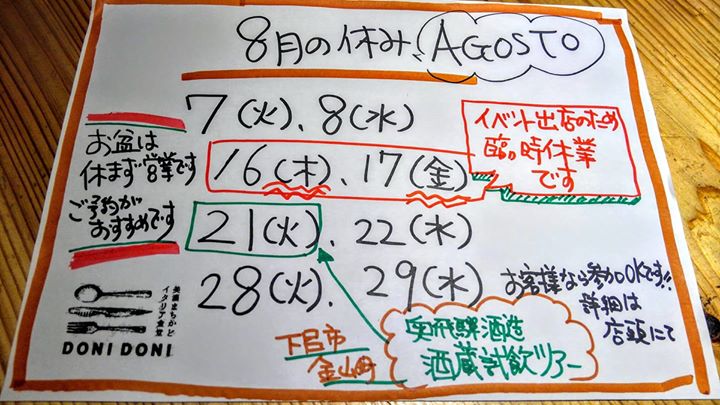 8月の休み AGOSTO
7(火)、8(水)
お盆は
休まず営業です
ご予約が
おすすめです
16(木)、17(金)
イベント出店のため
臨時休業
です
21(火)、22(水)
28(火)、29(水)
お客様なら参加OKです!!
詳細は
店頭にて
奥飛騨酒造
酒蔵試飲ツアー
下呂市
金山町
美濃まちかど
イタリア食堂
DONI DONI